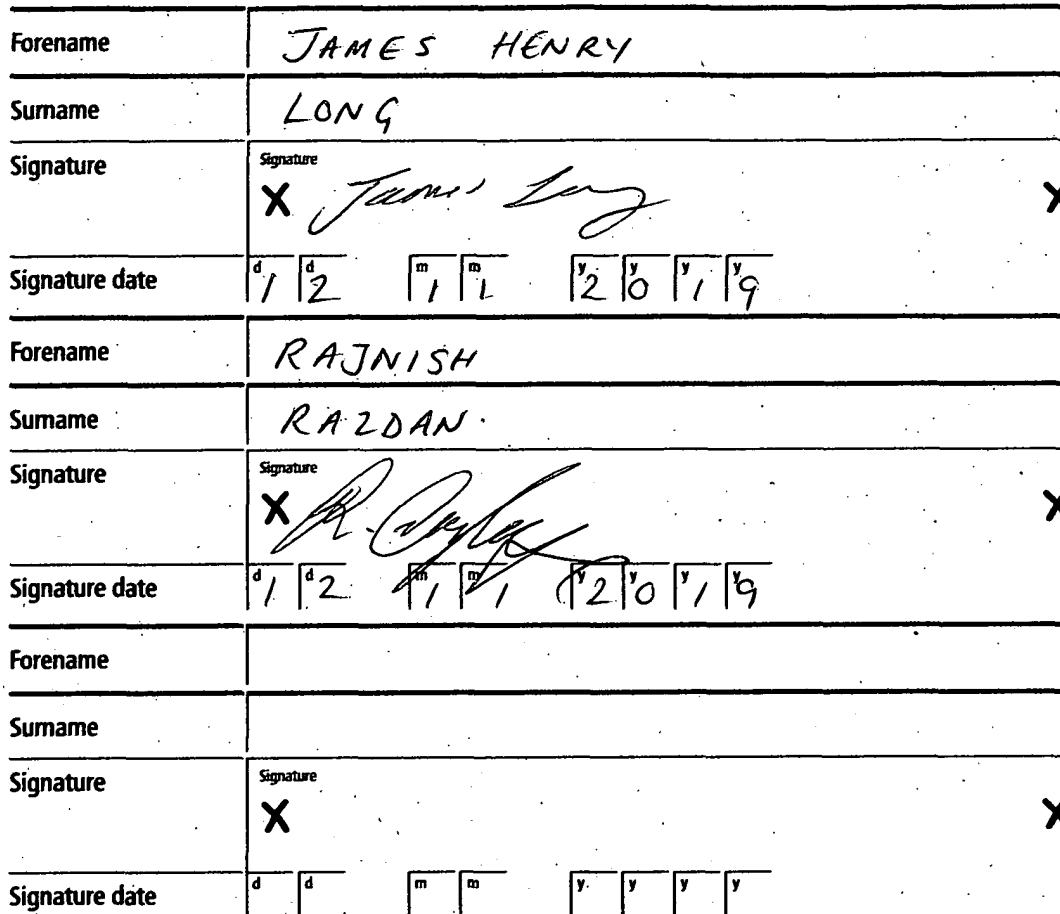 Forename JAMES HENRY
Surname LONG
Signature Signature
X James Long X
Signature date d 1 d 2 m 1 m 1 y 2 y 0 y 1 y 9
Forename RAJNISH
Surname RAZDAN.
Signature Signature
X R. X
Signature date d 1 d 2 m 1 m 1 y 2 y 0 y 1 y 9
Forename
Surname
Signature Signature
X X
Signature date d d m m y y y y